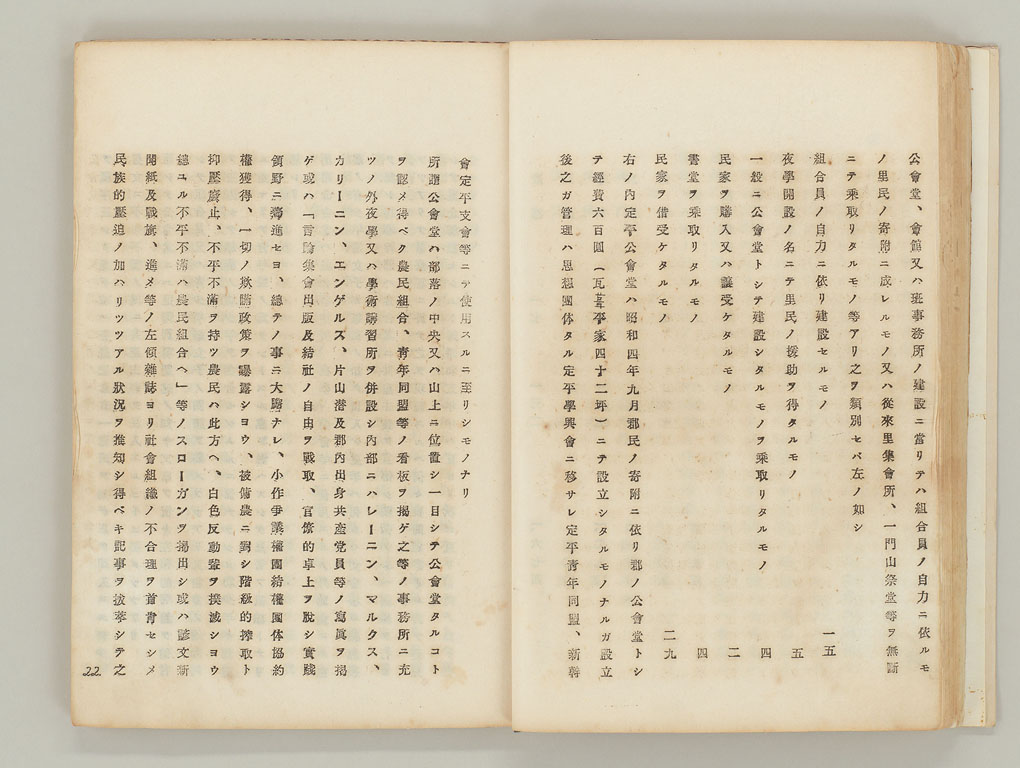 公會堂、會舘又ハ班事務所ノ建設ニ當リテハ組合員ノ自力ニ依ルモ
ノ里民ノ寄附ニ成レルモノ又ハ從來里集會所、一門山祭堂等ヲ無斷
ニテ乘取リタルモノ等アリ之ヲ類別セバ左ノ如シ
組合員ノ自力ニ依リ建設セルモノ 一五
夜學開設ノ名ニテ里民ノ援助ヲ得タルモノ 五
一般ニ公會堂トシテ建設シタルモノヲ乘取リタルモノ 四
民家ヲ購入又ハ讓受ケタルモノ 二
書堂ヲ乘取リタルモノ 四
民家ヲ借受ケタルモノ 二九
右ノ內定平公會堂ハ昭和四年九月郡民ノ寄附ニ依リ郡ノ公會堂トシ
テ經費六百圓（瓦葺平家四十二坪）ニテ設立シタルモノナルガ設立
後之ガ管理ハ思想團体タル定平學興會ニ移サレ定平靑年同盟、新幹
會定平支會等ニテ使用スルニ至リシモノナリ
所謂公會堂ハ部落ノ中央又ハ山上ニ位置シ一目シテ公會堂タルコト
ヲ認メ得ベク農民組合、靑年同盟等ノ看板ヲ揭ゲ之等ノ事務所ニ充
ツノ外夜學又ハ學術講習所ヲ併設シ內部ニハレーニン、マルクス、
カリーニン、エンゲルス、片山潜及郡內出身共產党員等ノ寫眞ヲ揭
ゲ或ハ「言論集會出版及結社ノ自由ヲ戰取、官僚的卓上ヲ脫シ實踐
領野ニ邁進セヨ、總テノ事ニ大膽ナレ、小作爭議權團結權團体協約
權獲得、一切ノ欺瞞政策ヲ曝露シヨウ、被傭農ニ對シ階級的搾取ト
抑壓廢止、不平不滿ヲ持ツ農民ハ此方ヘ、白色反動營ヲ撲滅シヨウ
總ユル不平不滿ハ農民組合ヘ」等ノスローガンヲ揭出シ或ハ諺文新
聞紙及戰旗、進メ等ノ左傾雜誌ヨリ社會組織ノ不合理ヲ首肯セシメ
民族的壓迫ノ加ハリツツアル狀況ヲ推知シ得ベキ記事ヲ拔萃シテ之
22